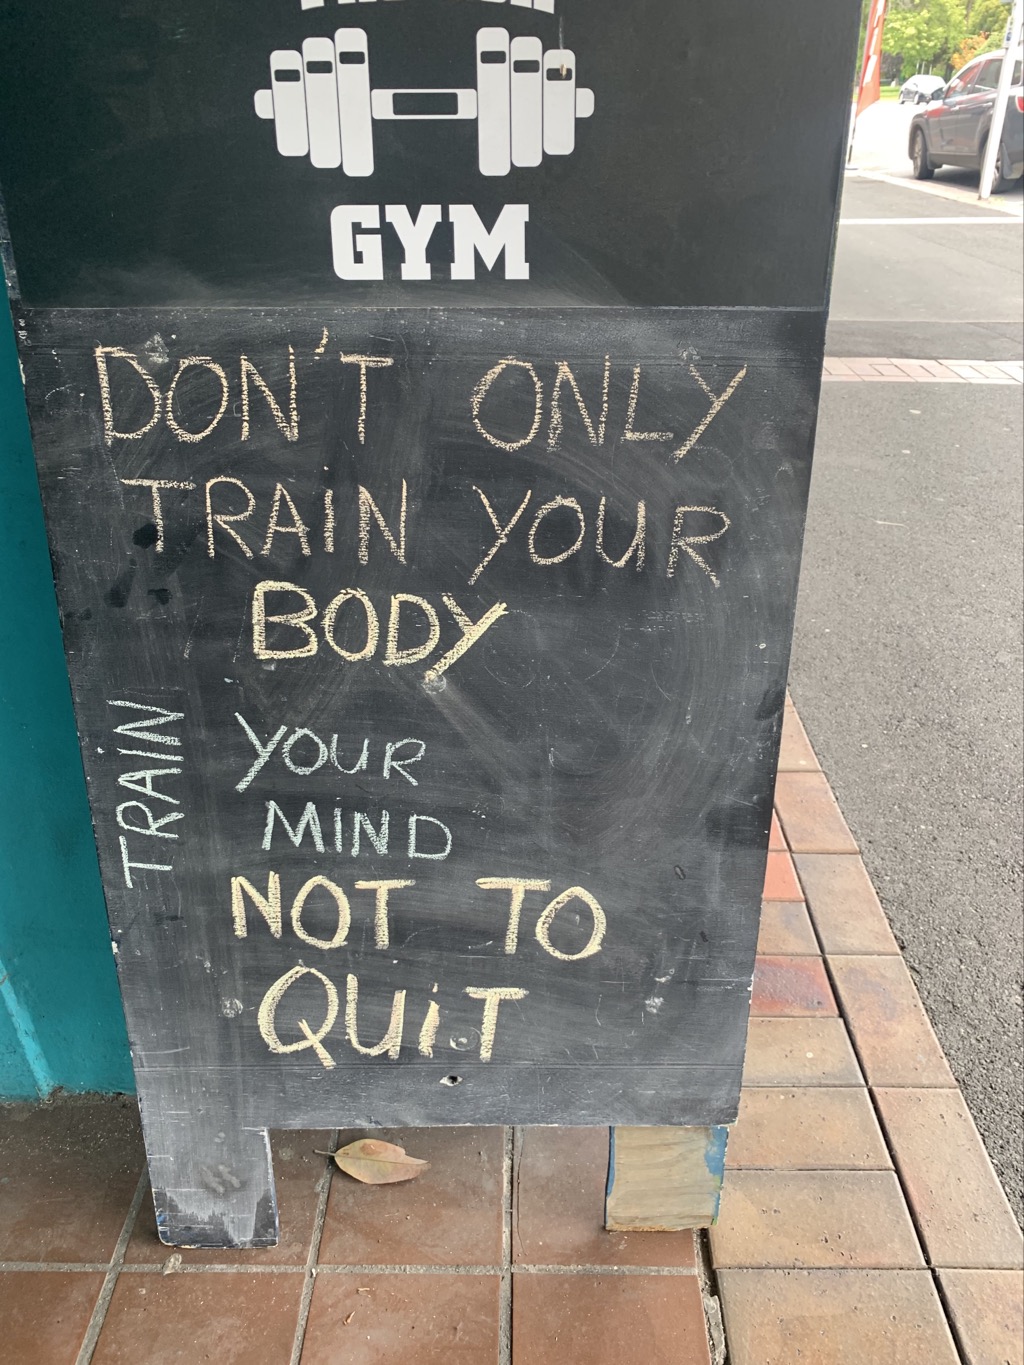 GYM
DON'T ONLY
TRAIN YOUR
BODY
TRAIN
YOUR
MIND
NOT TO
QUIT